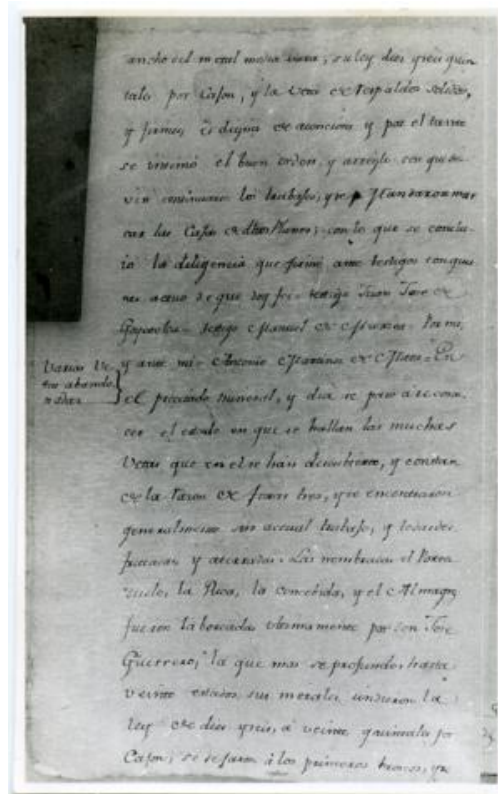 ancho del metal media vara, su ley diez y seis quin
tales por Cajon, y la veta de respaldos solidos,
y firmes es digna de atencion y por el tanto
se intimó el buen orden, y arreglo con que de
ven continuarse los trabajos, y se mandaron mar
car las Casas de dhas Minas; con lo que se conclu
ió la diligencia que firmé ante testigos con quie
nes actuo de que doy fe = testigo Juan Jose de
testigo Manuel de Por mi,
y ante mi = Antonio Martinez de = En
Varias Ve
tas abando
nadas
el precitado mineral, y dia se pasó a recono
cer el estado en que se hallan las muchas
Vetas que en el se han descubierto, y constan
de la razon de foxas tres, y se encontraron
generalmente sin actual trabajo, y las mas
y aterradas. Las nombradas el
la Rica, la concebida, y el Almagre
fueron laboreadas ultimamente por Don Jose
Guerrero, la que mas se profundó, hasta
veinte estados, sus metales rindieron la
ley de diez y seis, á veinte quintales por
Cajon, se dejaron á los primeros broceos, y se